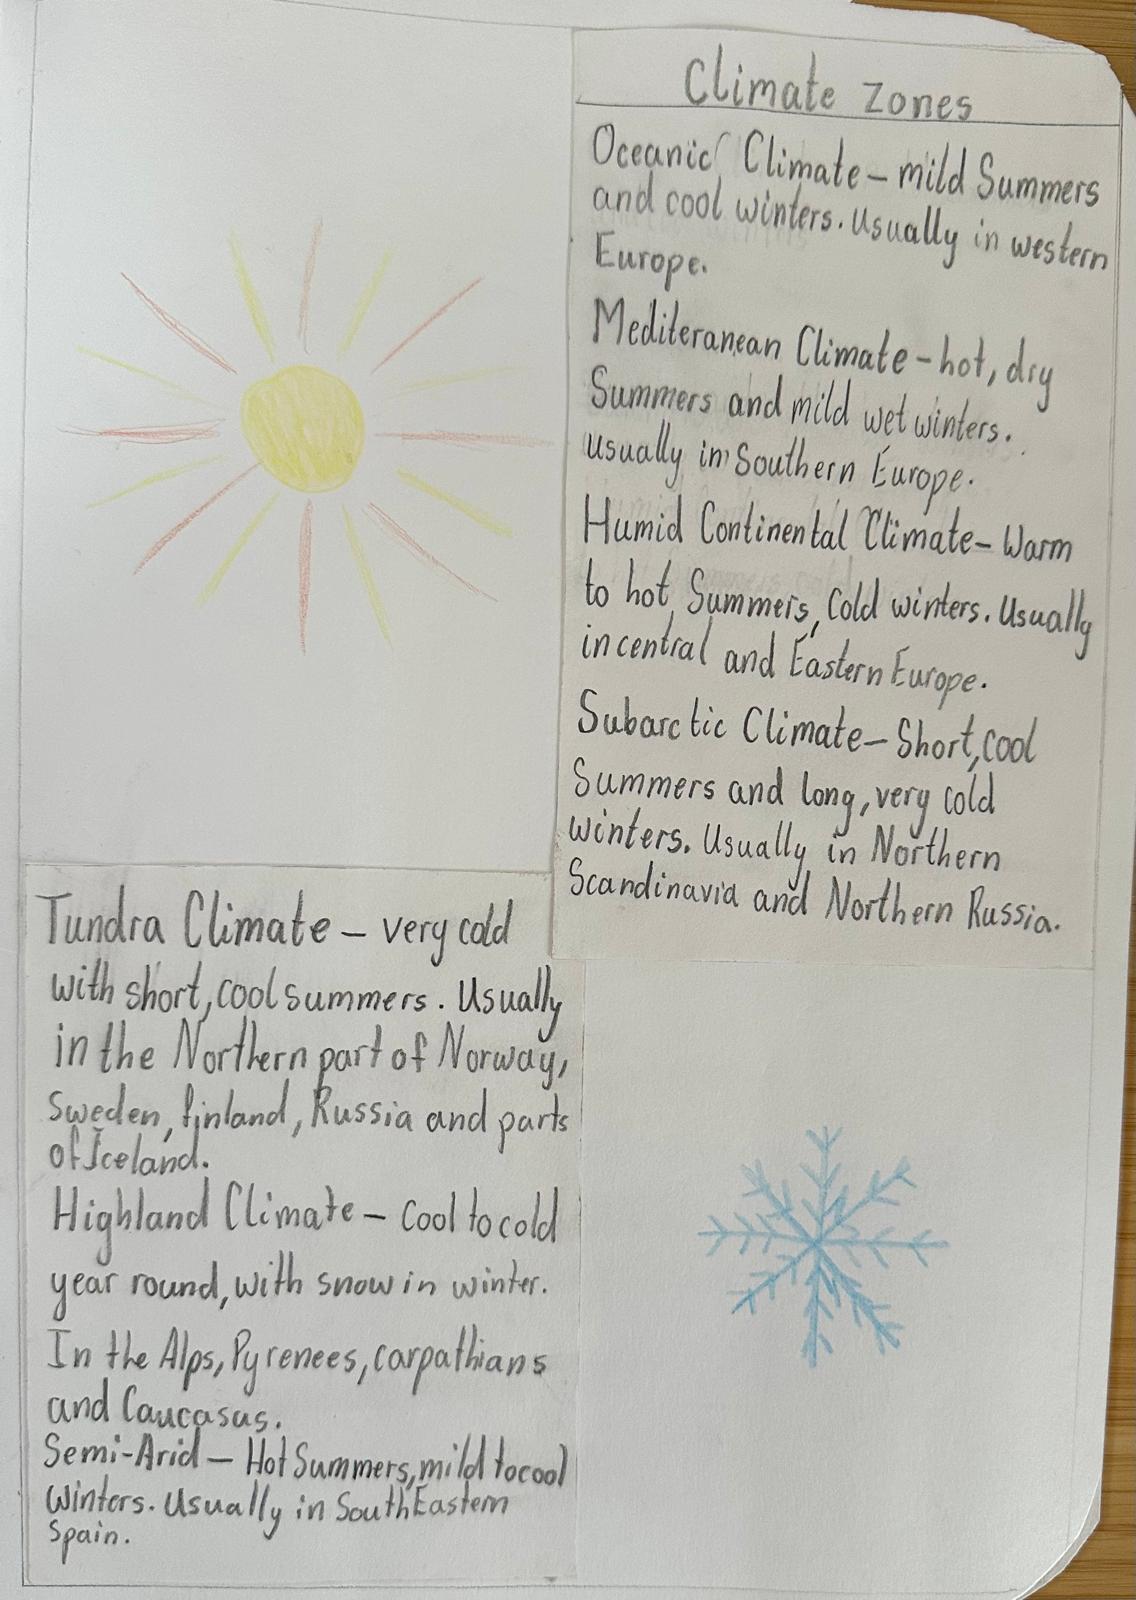 Climate zones
Oceanic Climate – mild Summers
and cool winters. Usually in western
Europe.
Mediteranean Climate – hot, dry
Summers and mild wet winters.
usually in Southern Europe.
Humid Continental Climate – Warm
to hot Summers, Cold winters. Usually
in central and Eastern Europe.
Subarctic Climate – Short, cool
Summers and long, very cold
winters. Usually in Northern
Scandinavia and Northern Russia.
Tundra Climate – very cold
with short, cool summers. Usually
in the Northern part of Norway,
Sweden, finland, Russia and parts
of Iceland.
Highland Climate – Cool to cold
year round, with snow in winter.
In the Alps, Pyrenees, carpathians
and Caucasas.
Semi-Arid – Hot Summers, mild to cool
Winters. Usually in South Eastern
Spain.